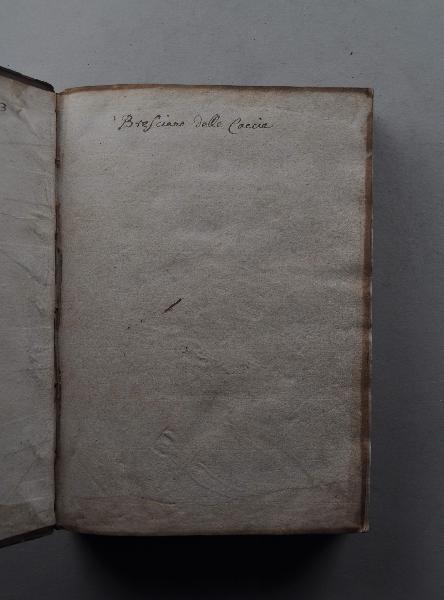 3
Bresciano delle Caccie